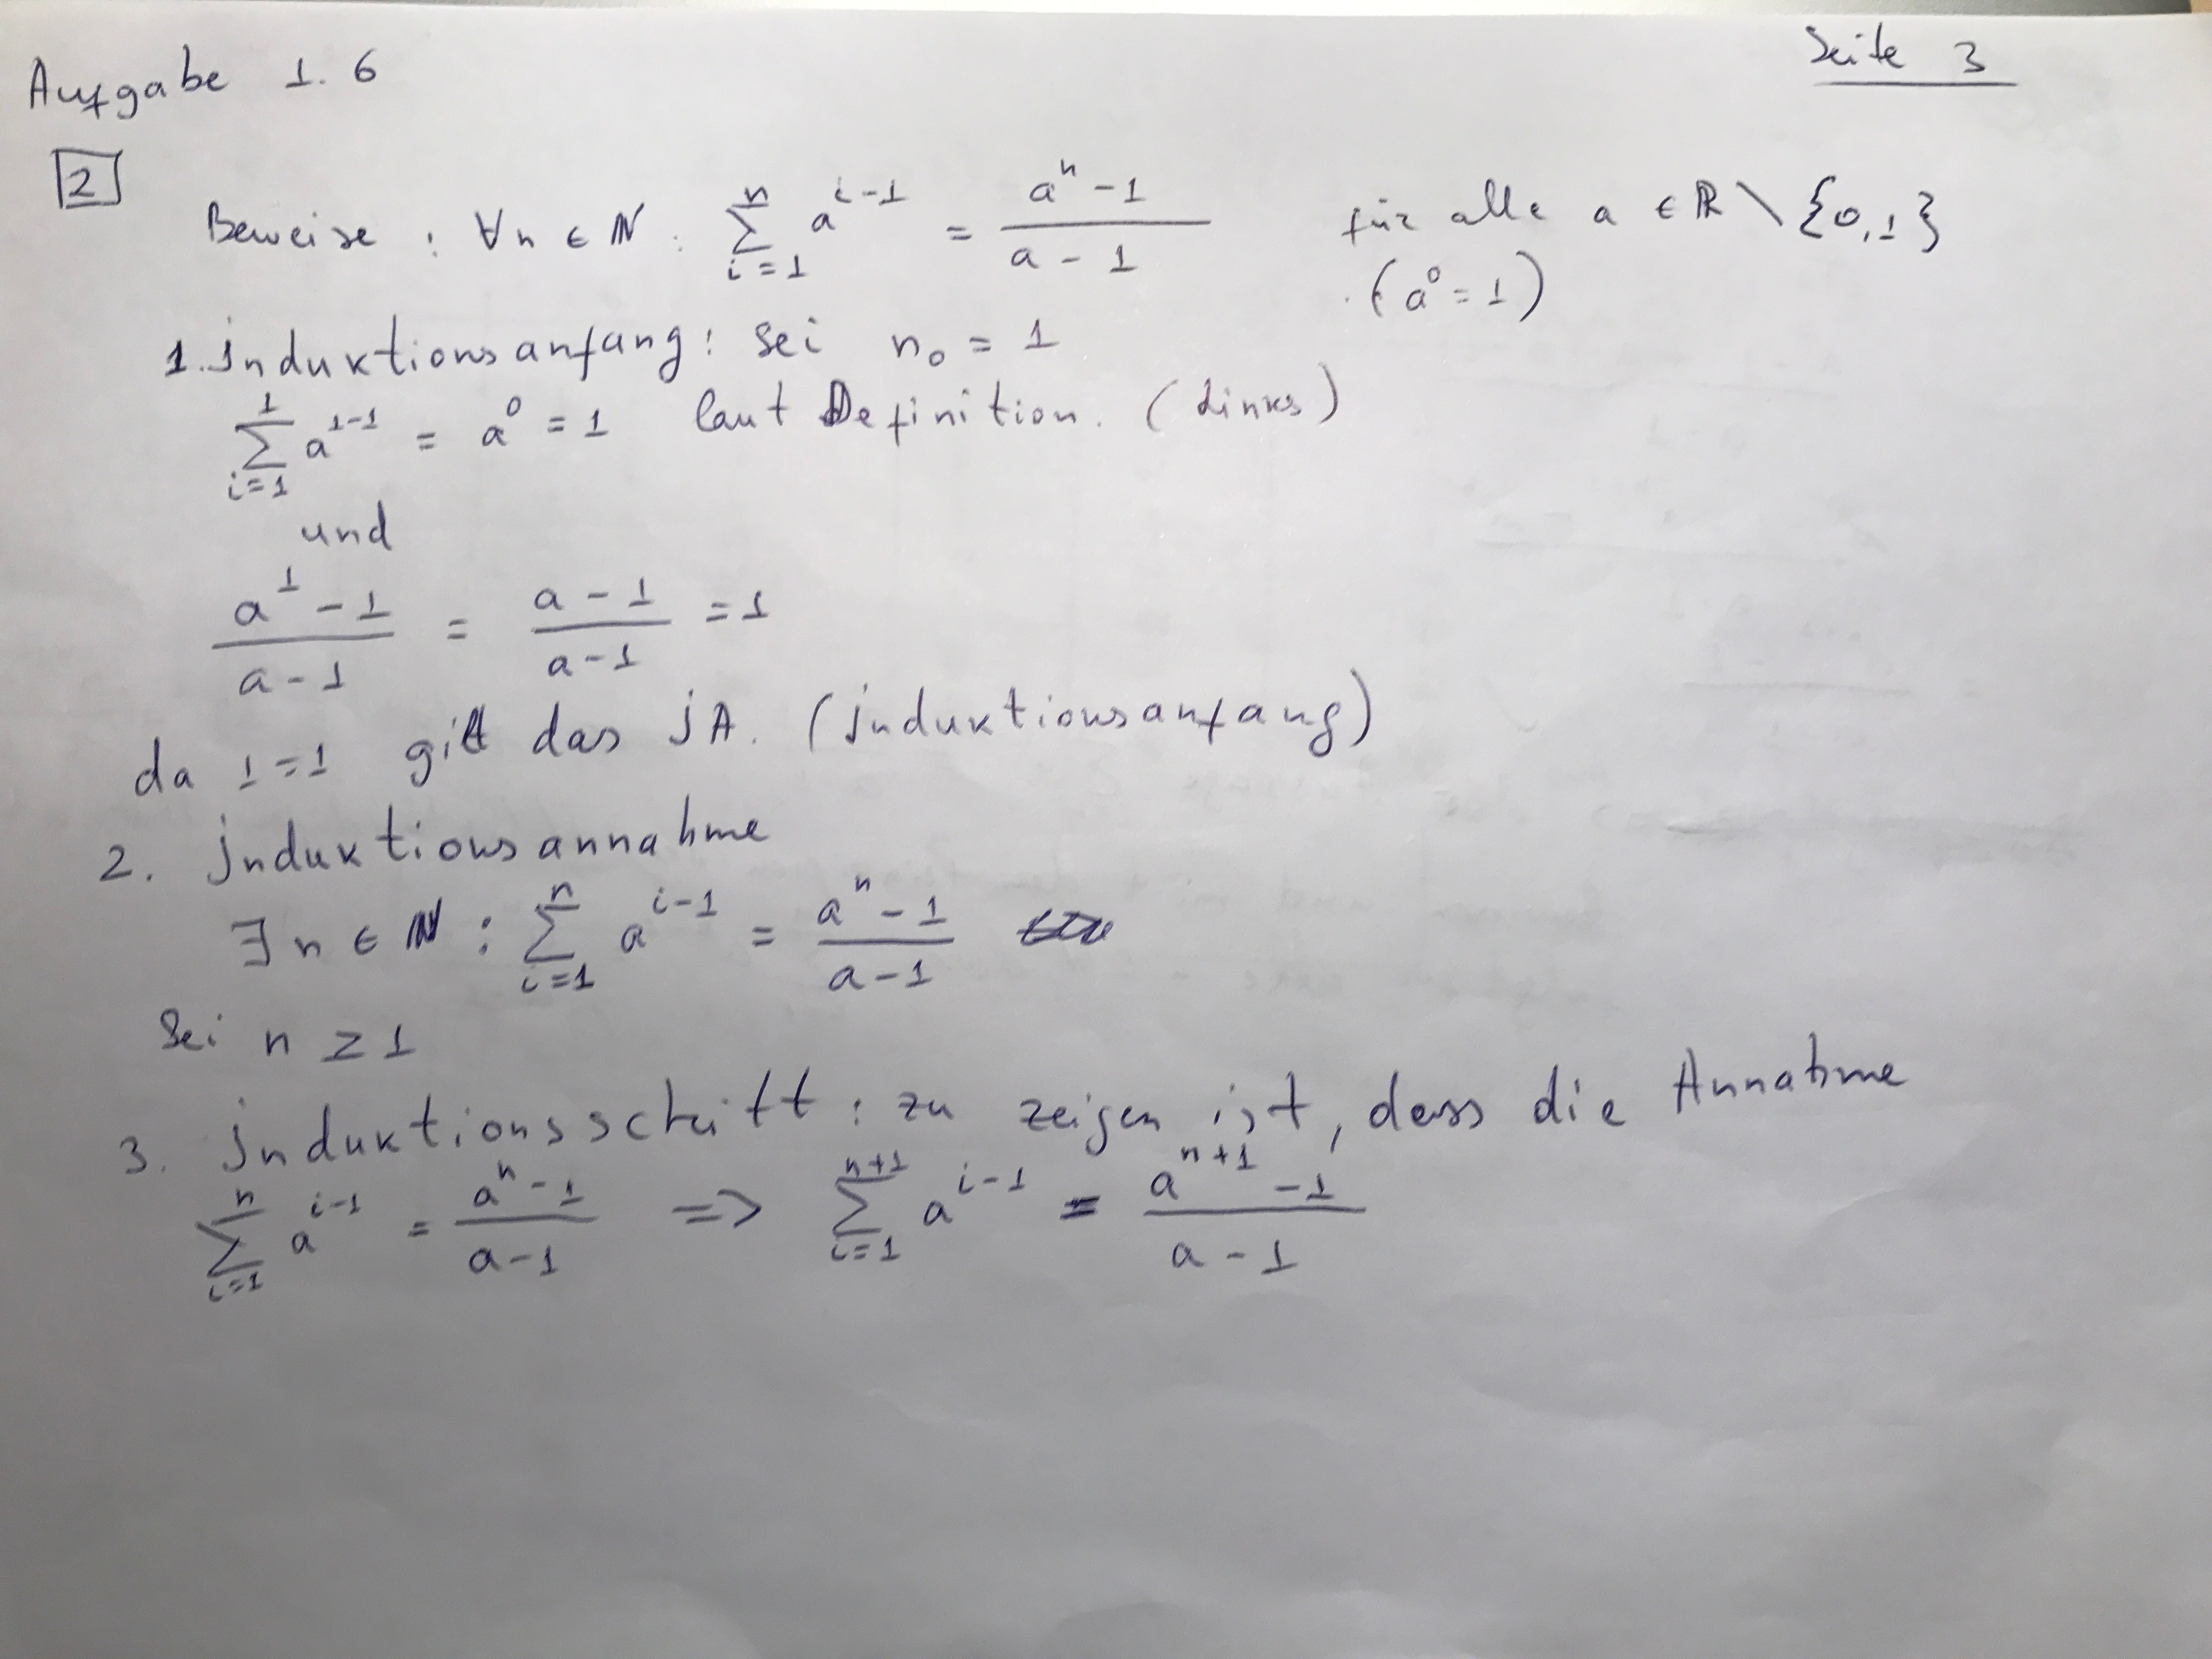 Aufgabe 1.6
Seite 3
2
Beweise : ∀n ∈ ℕ : ∑_{i=1}^{n} a^{i-1} = (a^n - 1)/(a - 1) für alle a ∈ ℝ \ {0,1}
(a^0 = 1)
1. Induktionsanfang: Sei n_0 = 1
∑_{i=1}^{1} a^{1-1} = a^0 = 1 laut Definition. (Links)
und
(a^1 - 1)/(a - 1) = (a - 1)/(a - 1) = 1
da 1=1 gilt das IA. (Induktionsanfang)
2. Induktionsannahme
∃ n ∈ ℕ : ∑_{i=1}^{n} a^{i-1} = (a^n - 1)/(a - 1)
Sei n ≥ 1
3. Induktionsschritt : zu zeigen ist, dass die Annahme
∑_{i=1}^{n} a^{i-1} = (a^n - 1)/(a - 1) => ∑_{i=1}^{n+1} a^{i-1} = (a^{n+1} - 1)/(a - 1)